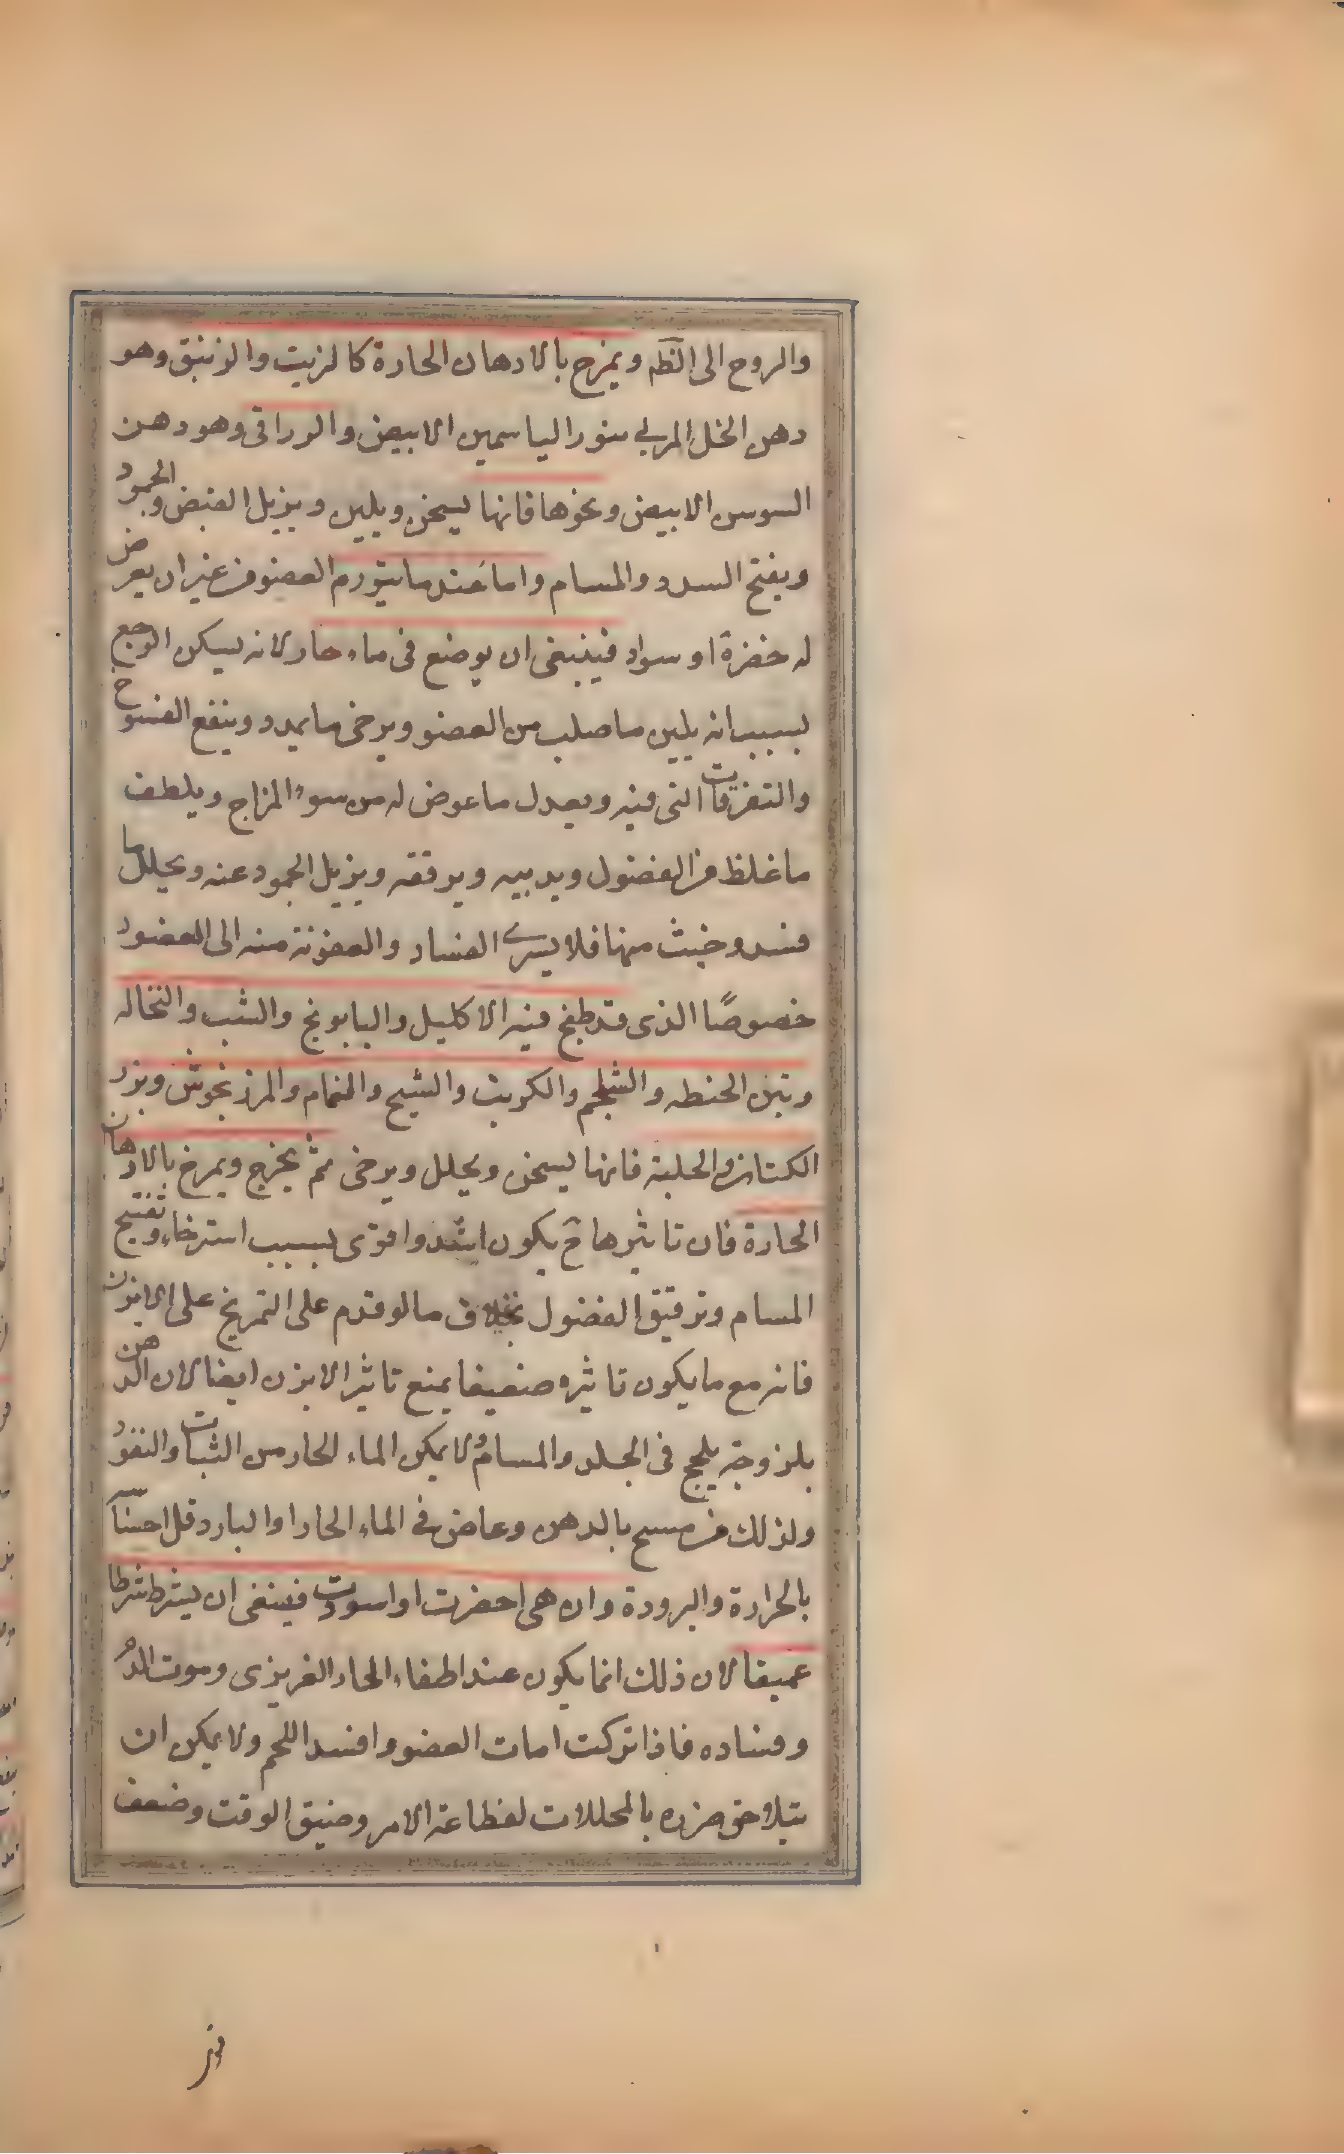 والروح الى الظ ويمزج بالادهان الحارة كالزيت والزنبق وهو
دهن الخل المربى بنور الياسمين الابيض والرازقى وهو دهن
السوسن الابيض ونحوها فانها يسخن ويلين ويزيل القبض والجمود
ويفتح السدد والمسام واما عند ما يتورم العضو من غير ان يعرض
له خضرة او سواد فينبغى ان يوضع فى ماء حار لانه يسكن الوجع
بسبب انه يلين ما صلب من العضو ويرخى ما يمدد وينفع الفسوخ
والتفرقات التى فيه ويعدل ما عرض له من سوء المزاج ويلطف
ما غلظ من الفضول ويذيبه ويرققه ويزيل الجمود عنه ويحلل ما
فسد وخبث منها فلا يسرى الفساد والعفونة منه الى العضو
خصوصًا الذى قد طبخ فيه الاكليل والبابونج والشب والنخاله
وتبن الحنطه والشلجم والكرنب والشيح والنمام والمرزنجوش وبزر
الكتان والحلبة فانها يسخن ويحلل ويرخى ثم يخرج ويمرخ بالادهان
الحارة فان تاثيرها ح يكون اشد واقوى بسبب استرخاء وتفتيح
المسام وترقيق الفضول بخلاف ما لو قدم على التمريخ على الابزن
فانه مع ما يكون تاثيره ضعيفا يمنع تاثير الابزن ايضا لان الدهن
بلزوجته يلحج فى الجلد والمسام ولا يمكن الماء الحار من الثبات والنفوذ
ولذلك من مسح بالدهن وغاص فى الماء الحار او البارد قل احساسه
بالحرارة والبرودة وان هى اخضرت او اسودت فينبغى ان يشرط شرطا
عميقا لان ذلك انما يكون عند اطفاء الحار الغريزى وموت الدم
وفساده فاذا تركت امات العضو وافسد اللحم ولا يمكن ان
يتلاحق ضرره بالمحللات لفظاعة الامر وضيق الوقت وضعف